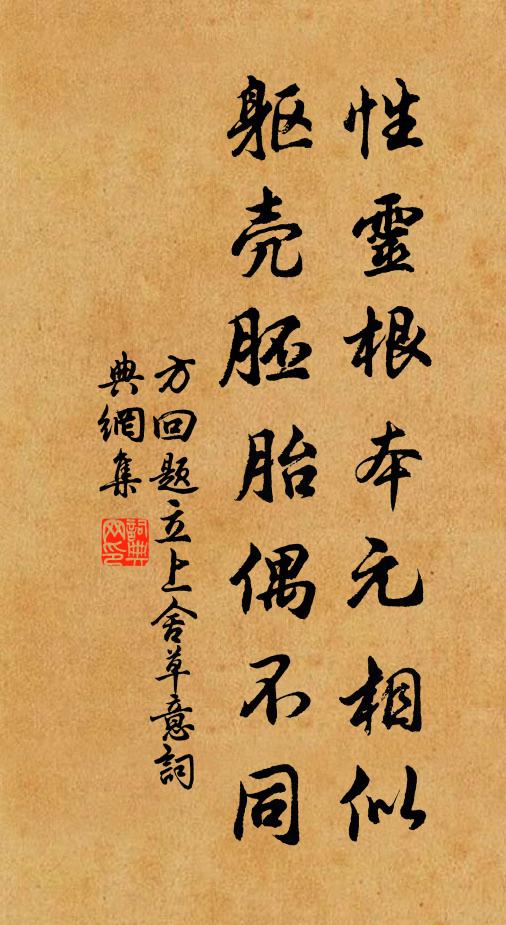 性靈根本元相似
躯壳胚胎偶不同
方回題立上舍草意詞
典網集
詞典網印